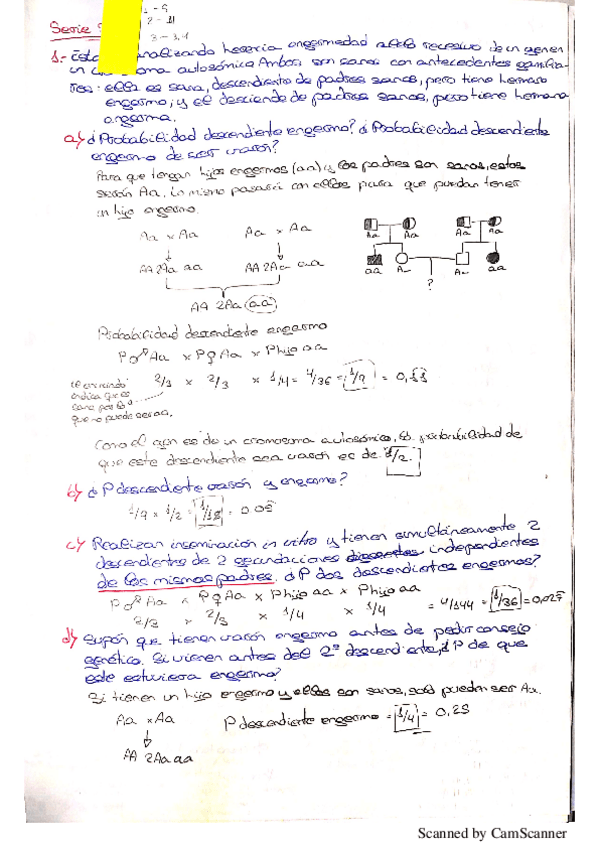 1 - 5
Serie
2 - 11
3 - 3,4
1.- analizando herencia enfermedad recesivo de un gen en
un autosómico. Ambos son sanos con antecedentes familia-
res: ella es sana, descendiente de padres sanos, pero tiene hermano
enfermo; y el desciende de padres sanos, pero tiene hermana
enferma.
a) ¿Probabilidad descendiente enfermo? ¿Probabilidad descendiente
enfermo de ser varón?
Para que tengan hijos enfermos (aa) y los padres son sanos, estos
serán Aa. Lo mismo pasará con ellos para que puedan tener
un hijo enfermo.
Aa × Aa Aa × Aa
Aa Aa Aa Aa
AA 2Aa aa AA 2Aa aa
aa Aa Aa aa
?
AA 2Aa aa
Probabilidad descendiente enfermo
P♂Aa × P♀Aa × Phijo aa
2/3 × 2/3 × 1/4 = 4/36 = 1/9 = 0,11
indica que es
sano, por lo
que no puede ser aa.
Como el gen es de un cromosoma autosómico, la probabilidad de
que este descendiente sea varón es de 1/2.
b) ¿P descendiente varón y enfermo?
1/9 × 1/2 = 1/18 = 0.05
c) Realizan inseminación in vitro y tienen simultáneamente 2
descendientes de 2 fecundaciones independientes
de los mismos padres. ¿P dos descendientes enfermos?
P♂Aa × P♀Aa × Phijo aa × Phijo aa
2/3 × 2/3 × 1/4 × 1/4 = 4/144 = 1/36 = 0,025
d) Supón que tienen varón enfermo antes de pedir consejo
genético. Si vienen antes del 2º descendiente, ¿P de que
este estuviera enfermo?
Si tienen un hijo enfermo y ellos son sanos, solo pueden ser Aa.
Aa × Aa
P descendiente enfermo = 1/4 = 0,25
AA 2Aa aa
Scanned by CamScanner